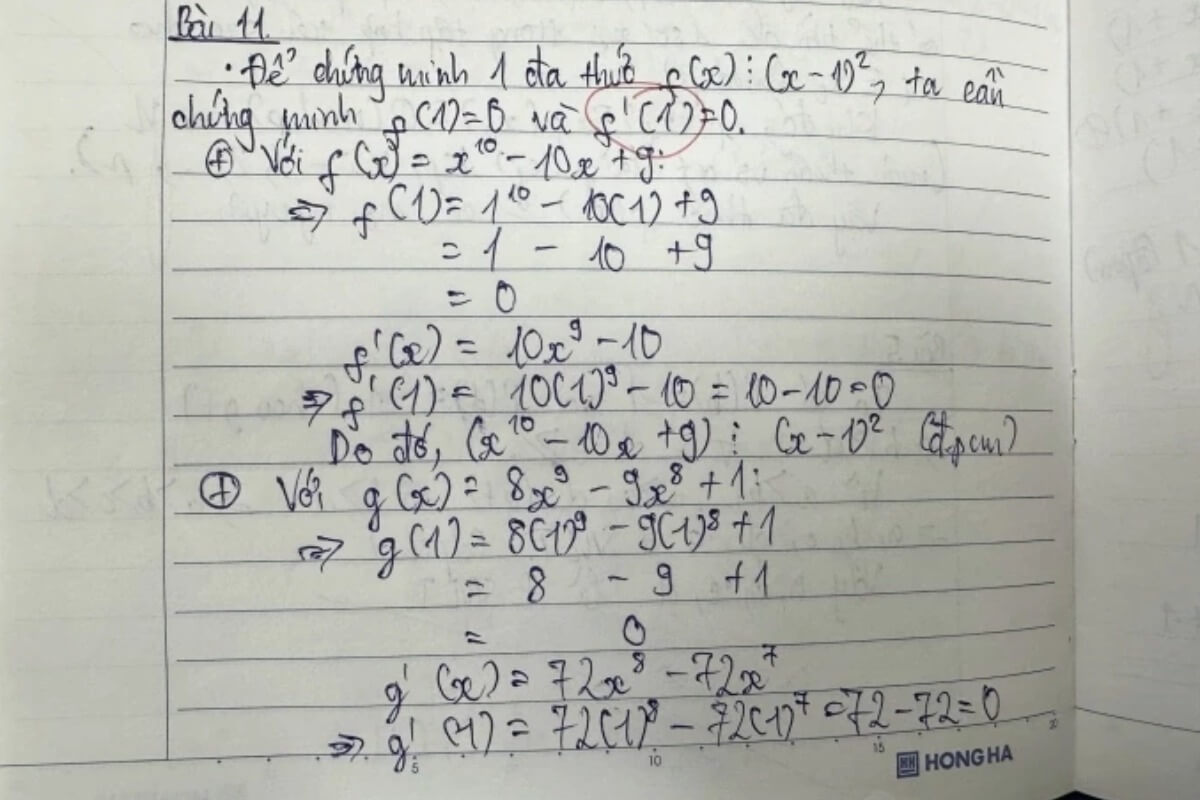 Bài 11.
· Để chứng minh 1 đa thức f(x) ⋮ (x-1)², ta cần
chứng minh f(1)=0 và f'(1)=0.
⊕ Với f(x) = x¹⁰ - 10x + 9:
=> f(1) = 1¹⁰ - 10(1) + 9
= 1 - 10 + 9
= 0
f'(x) = 10x⁹ - 10
=> f'(1) = 10(1)⁹ - 10 = 10 - 10 = 0
Do đó, (x¹⁰ - 10x + 9) ⋮ (x-1)² (đpcm)
⊕ Với g(x) = 8x⁹ - 9x⁸ + 1:
=> g(1) = 8(1)⁹ - 9(1)⁸ + 1
= 8 - 9 + 1
= 0
g'(x) = 72x⁸ - 72x⁷
=> g'(1) = 72(1)⁸ - 72(1)⁷ = 72 - 72 = 0
5 10 15 20
HH HONG HA